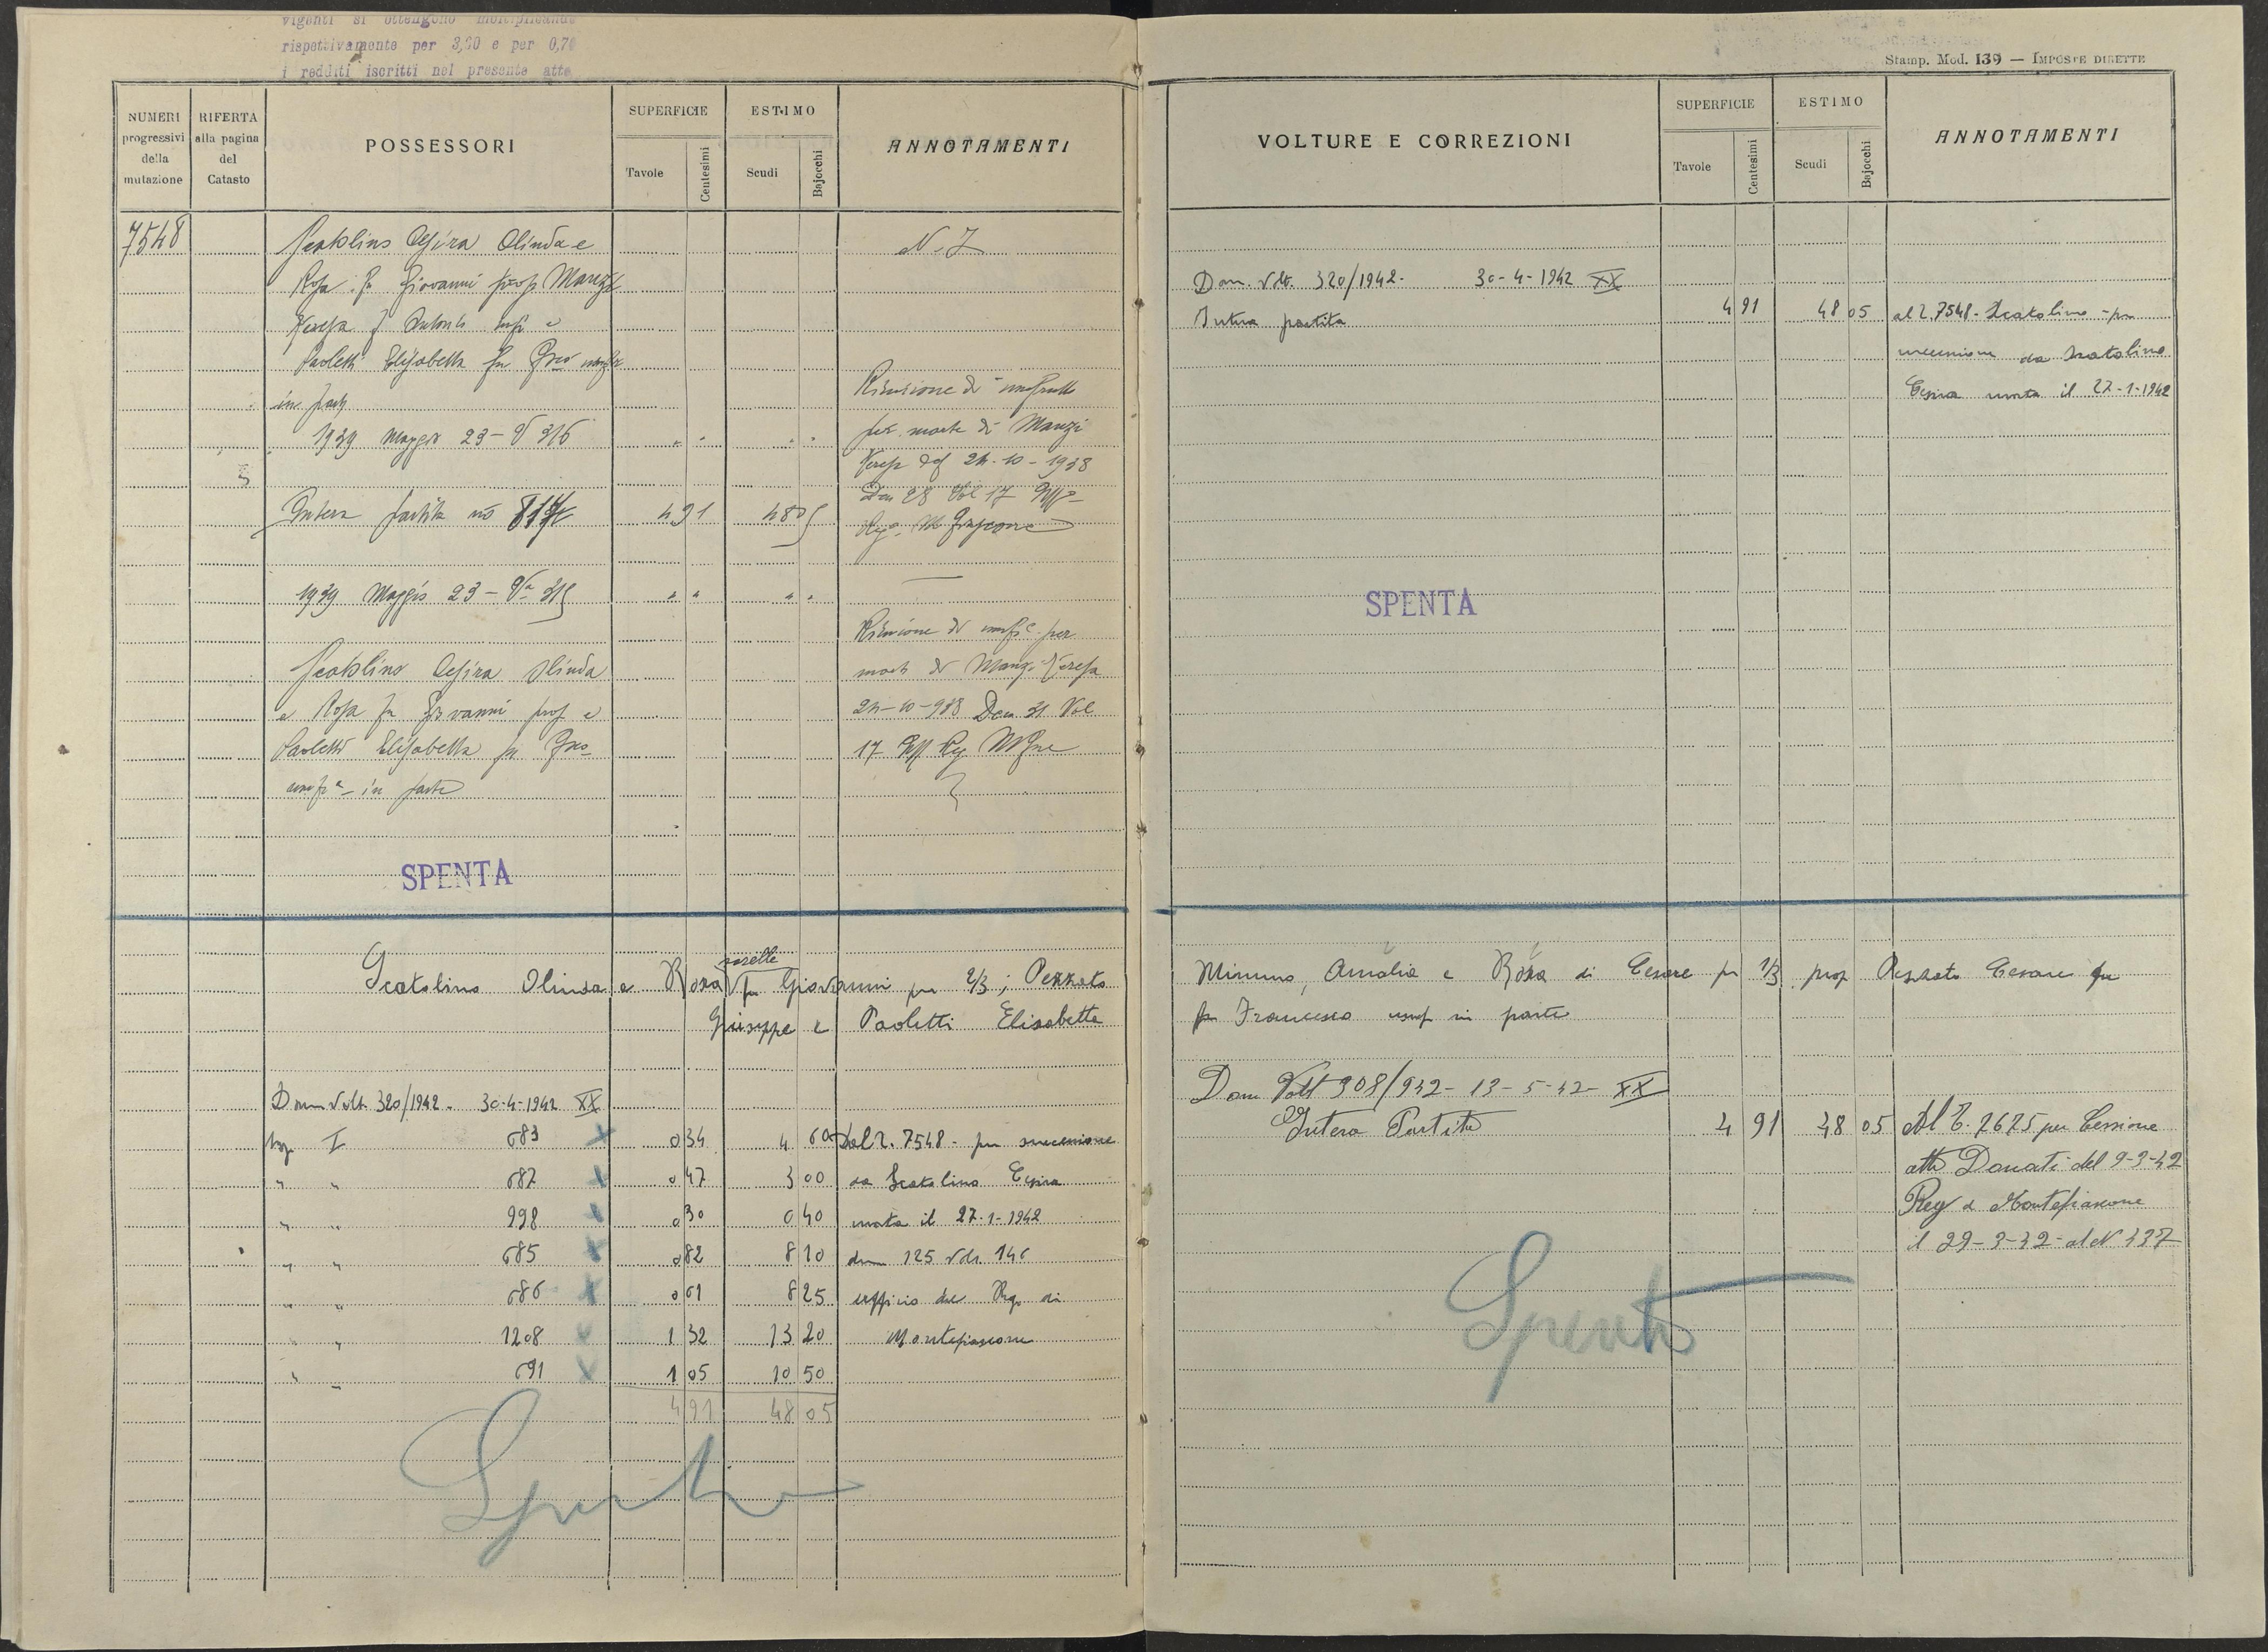 vigenti si ottengono moltiplicando
rispettivamente per 3,00 e per 0,70
i redditi iscritti nel presente atto
NUMERI progressivi della mutazione
RIFERTA alla pagina del Catasto
POSSESSORI
SUPERFICIE
Tavole
Centesimi
ESTIMO
Scudi
Bajocchi
ANNOTAMENTI
7548
Scatolino Cesira Olinda e
Rosa fu Giovanni prop Manzi
Teresa fu Antonio usuf e
Paoletti Elisabetta fu Fco usuf
in parte
1939 Maggio 23 - V 316
Intera partita no 817
4 91 48 05
1939 Maggio 23 - Va 315
Scatolino Cesira Olinda
e Rosa fu Giovanni prop e
Paoletti Elisabetta fu Fco
usufa - in parte
N. 7
Riunione di usufrutto
per morte di Manzi
Teresa del 24-10-1938
Den 28 Vol 17 Uffo
Rego M Fiascone
Riunione di usufo per
morte di Manzi Teresa
24-10-938 Den 31 Vol
17 Uff Reg MFne
SPENTA
Scatolino Olinda e Rosa sorelle fu Giovanni per 2/3; Pezzato
Giuseppe e Paoletti Elisabetta
Dom Volt. 320/1942 - 30-4-1942 XX
Sez I 683 0 34 4 60 Dal 2. 7548 - per successione
" " 687 0 47 3 00 da Scatolino Cesira
" " 998 0 30 0 40 morta il 27-1-1942
" " 685 0 82 8 10 den 125 vol. 146
" " 686 0 61 8 25 ufficio del Reg. di
" " 1208 1 32 13 20 Montefiascone
" " 691 1 05 10 50
4 91 48 05
Spenta
Stamp. Mod. 139 — IMPOSTE DIRETTE
VOLTURE E CORREZIONI
SUPERFICIE
Tavole
Centesimi
ESTIMO
Scudi
Bajocchi
ANNOTAMENTI
Dom. Volt. 320/1942 - 30-4-1942 XX
Intera partita 4 91 48 05 al 2. 7548 - Scatolino - per
successione da Scatolino
Cesira morta il 27-1-1942
SPENTA
Mimmo, Amalia e Rosa di Cesare per 1/3 prop Pezzato Cesare fu
fu Francesco usuf in parte
Dom Volt 308/942 - 13-5-42 - XX
Intera Partita 4 91 48 05 Al 2. 2625 per Cessione
atto Donati del 9-3-42
Reg a Montefiascone
il 29-3-42 - al N 437
Spenta